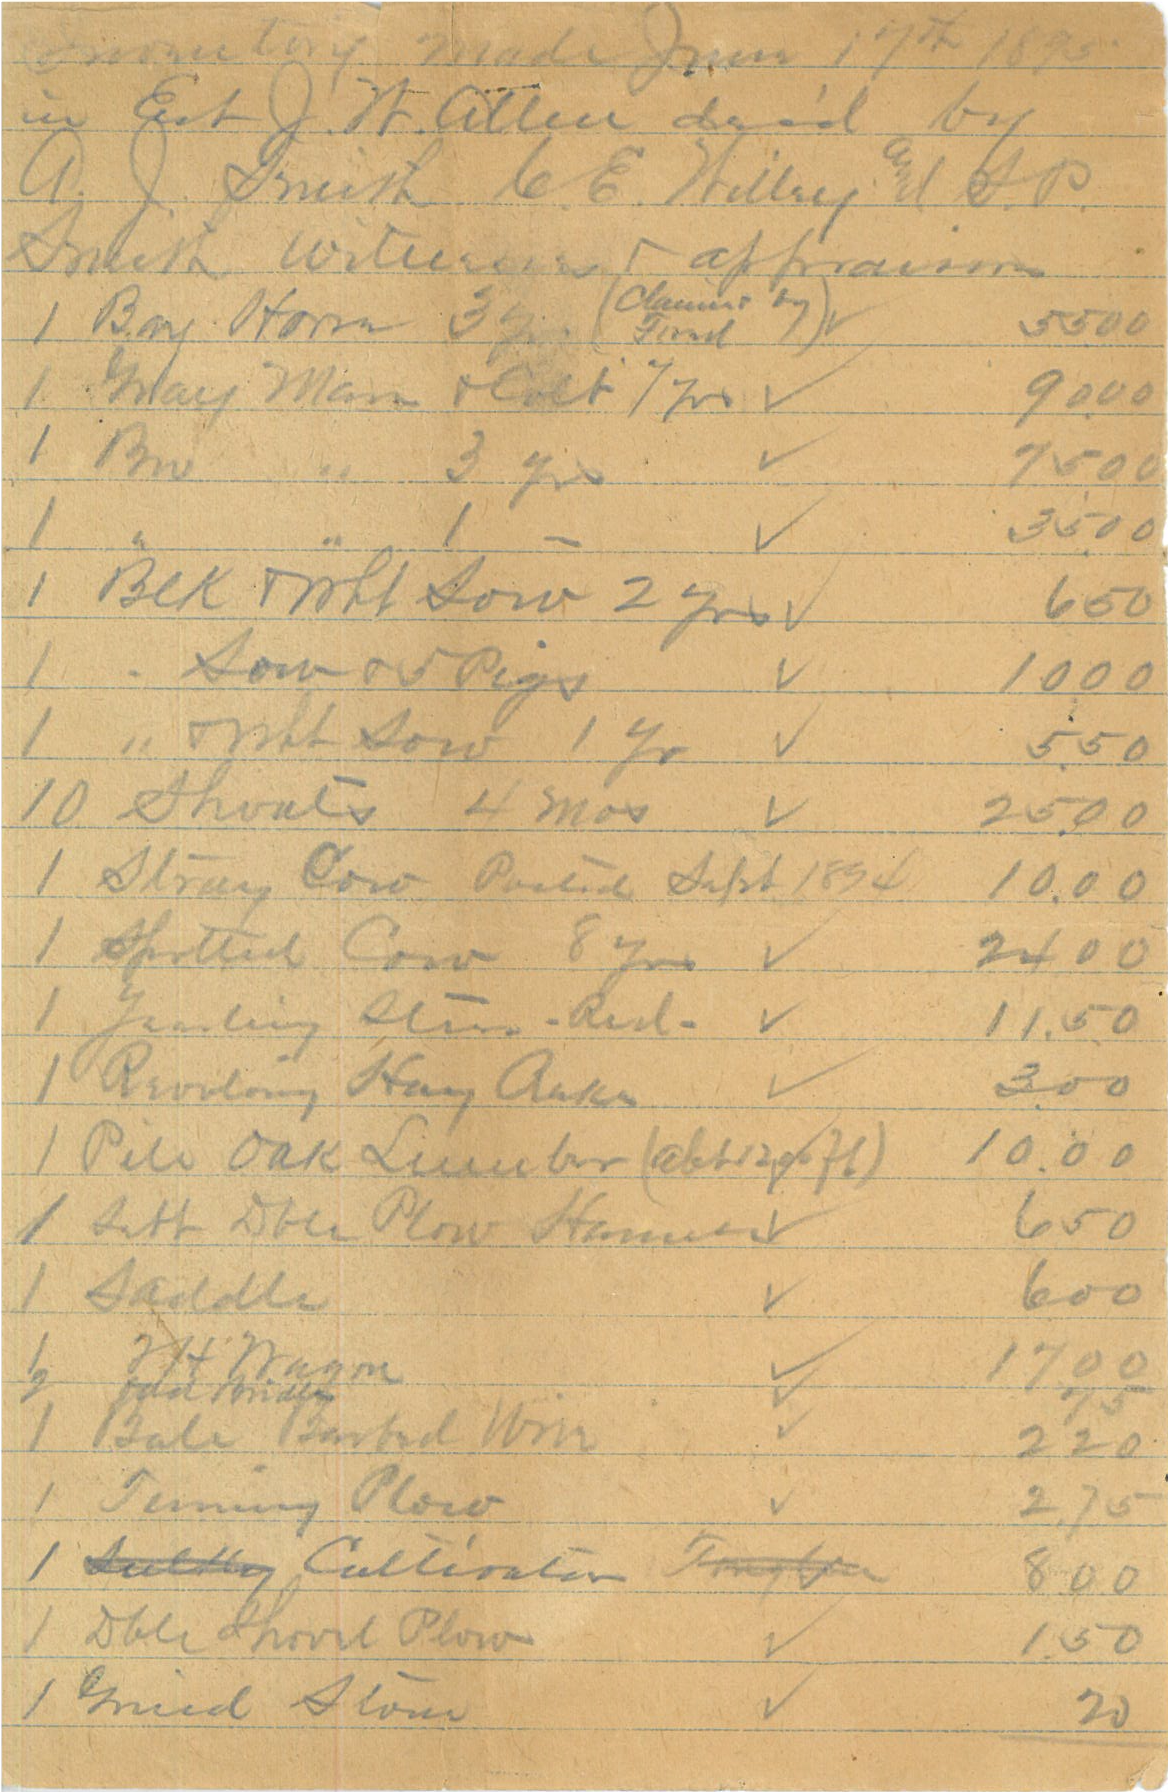 Inventory Made June 17th 1895
in Est J. W. Allen dec'd by
A. J. Smith C. E. Willey and S. P.
Smith Witnesses & appraisers
1 Bay Horse 3 yr (Claimed by Fred) ✓ 5500
1 Gray Mare & Colt 7 yrs ✓ 9000
1 Brw " 3 yrs ✓ 7500
1 " " 1 – ✓ 3500
1 Blk & Wht Sow 2 yrs ✓ 650
1 " Sow & 5 Pigs ✓ 1000
1 " & Wht Sow 1 yr ✓ 5.50
10 Shoats 4 mos ✓ 25.00
1 Stray Cow Posted Sept 1894 10.00
1 Spotted Cow 8 yrs ✓ 2400
1 Yearling Steer - Red - ✓ 11.50
1 Revolving Hay Rake ✓ 3.00
1 Pile Oak Lumber (abt 1200 ft) 10.00
1 Sett Dble Plow Harness ✓ 650
1 Saddle ✓ 600
1 2 H Wagon ✓ 1700
2 Odd Bridles ✓ 75
1 Bale Barbed Wire ✓ 220
1 Turning Plow ✓ 2.75
1 Sulkey Cultivator 800
1 Dble Shovel Plow ✓ 1.50
1 Grind Stone ✓ 20